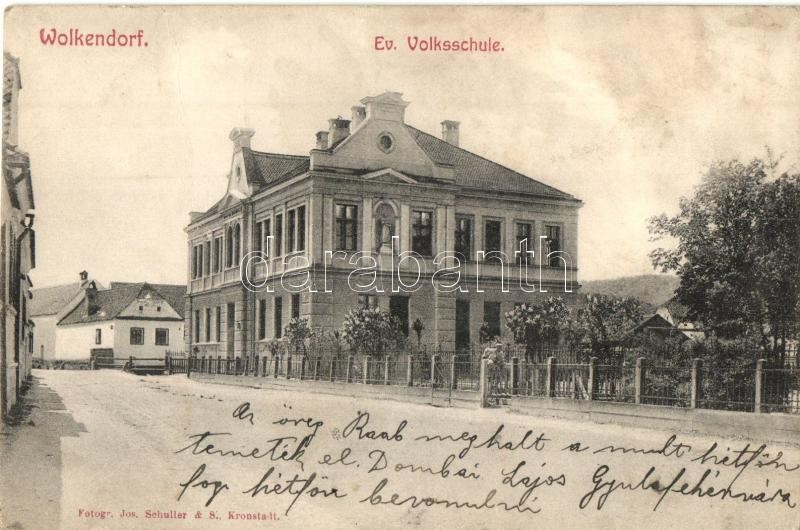 Wolkendorf.
Ev. Volksschule.
darabanth
Az öreg Raab meghalt a mult hétfőn
temették el. Dombai Lajos Gyulafehérvára
fog hétfőn bevonulni
Fotogr. Jos. Schuller & S., Kronstadt.